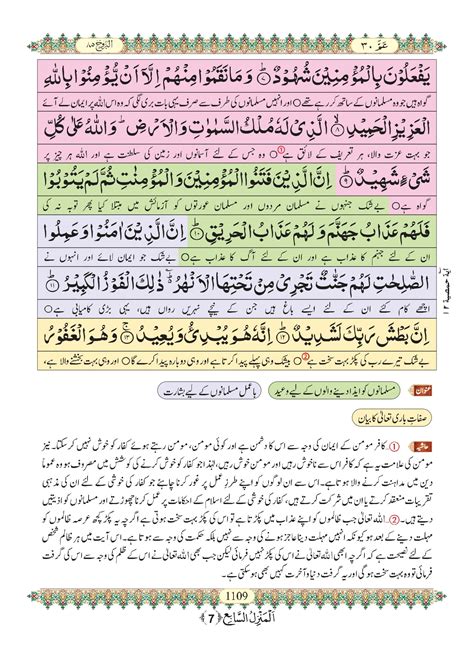 عَمَّ ٣٠
البروج ٨٥
یَفْعَلُوْنَ بِالْمُؤْمِنِیْنَ شُهُوْدٌ ﴿۷﴾ وَ مَا نَقَمُوْا مِنْهُمْ اِلَّاۤ اَنْ یُّؤْمِنُوْا بِاللّٰهِ
گواہ ہیں جو وہ مسلمانوں کے ساتھ کر رہے تھے ○ اور انہیں مسلمانوں کی طرف سے صرف یہی بات بری لگی کہ وہ اس اللہ پر ایمان لے آئے
الْعَزِیْزِ الْحَمِیْدِ ﴿۸﴾ الَّذِیْ لَهٗ مُلْكُ السَّمٰوٰتِ وَ الْاَرْضِ ؕ وَ اللّٰهُ عَلٰى كُلِّ
جو بہت عزت والا، ہر تعریف کے لائق ہے ①○ وہ جس کے لئے آسمانوں اور زمین کی سلطنت ہے اور اللہ ہر چیز پر
شَیْءٍ شَهِیْدٌ ﴿۹﴾ اِنَّ الَّذِیْنَ فَتَنُوا الْمُؤْمِنِیْنَ وَ الْمُؤْمِنٰتِ ثُمَّ لَمْ یَتُوْبُوْا
گواہ ہے ○ بے شک جنہوں نے مسلمان مردوں اور مسلمان عورتوں کو آزمائش میں مبتلا کیا پھر توبہ نہ کی
فَلَهُمْ عَذَابُ جَهَنَّمَ وَ لَهُمْ عَذَابُ الْحَرِیْقِ ﴿۱۰﴾ اِنَّ الَّذِیْنَ اٰمَنُوْا وَ عَمِلُوا
ان کے لئے جہنم کا عذاب ہے اور ان کے لئے آگ کا عذاب ہے ○ بے شک جو ایمان لائے اور انہوں نے
الصّٰلِحٰتِ لَهُمْ جَنّٰتٌ تَجْرِیْ مِنْ تَحْتِهَا الْاَنْهٰرُ ۬ؕ ذٰلِكَ الْفَوْزُ الْكَبِیْرُ ﴿۱۱﴾
اچھے کام کئے ان کے لئے ایسے باغ ہیں جن کے نیچے نہریں رواں ہیں، یہی بڑی کامیابی ہے ○
اِنَّ بَطْشَ رَبِّكَ لَشَدِیْدٌ ﴿۱۲﴾ اِنَّهٗ هُوَ یُبْدِئُ وَ یُعِیْدُ ﴿۱۳﴾ وَ هُوَ الْغَفُوْرُ
بے شک تیرے رب کی پکڑ بہت سخت ہے ②○ بیشک وہی پہلے پیدا کرتا ہے اور وہی دوبارہ پیدا کرے گا ○ اور وہی بہت بخشنے والا ہے،
عنوان مسلمانوں کو ایذا دینے والوں کے لیے وعید باعمل مسلمانوں کے لیے بشارت
صفاتِ باری تعالیٰ کا بیان
حاشیہ ①۔ کافر مومن کے ایمان کی وجہ سے اس کا دشمن ہے اور کوئی مومن، مومن رہتے ہوئے کفار کو خوش نہیں کر سکتا۔ نیز
مومن کی علامت یہ ہے کہ کافر اس سے ناخوش رہیں اور مومن اس سے خوش رہیں، لہٰذا جو کفار کو خوش کرنے کی کوشش میں مصروف ہو وہ عموماً
دین میں مداہنت کرنے والا ہوتا ہے۔ اسی سے ان لوگوں کو اپنے طرزِ عمل پر غور کرنا چاہئے جو کفار کی خوشی کے لئے ان کی مذہبی
تقریبات منعقد کرتے یا ان میں شرکت کرتے ہیں، کفار کی خوشی کے لئے اسلام کے احکامات پر عمل کرنا چھوڑتے اور مسلمانوں کو اذیتیں
دیتے ہیں۔ ②۔ اللہ تعالیٰ جب ظالموں کو اپنے عذاب میں پکڑتا ہے تو اس کی پکڑ بہت سخت ہوتی ہے اگرچہ یہ پکڑ کچھ عرصہ ظالموں کو
مہلت دینے کے بعد ہو کیونکہ انہیں مہلت دینا عاجز ہونے کی وجہ سے نہیں بلکہ حکمت کی وجہ سے ہوتا ہے۔ اس آیت میں ہر ظالم شخص
کے لئے نصیحت ہے کہ اگرچہ ابھی اللہ تعالیٰ نے اس کی گرفت نہیں فرمائی لیکن جب بھی اللہ تعالیٰ نے اس کے ظلم کی وجہ سے اس کی گرفت
فرمائی تو وہ بہت سخت ہوگی اور یہ گرفت دنیا و آخرت میں کہیں بھی ہو سکتی ہے۔
1109
اَلْمَنْزِلُ السَّابِع ﴿7﴾